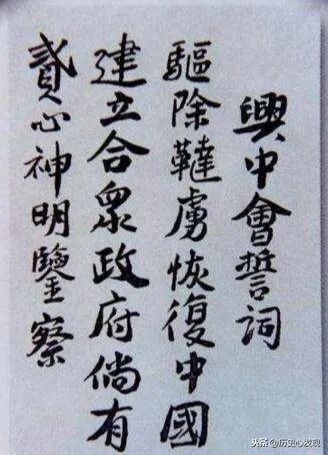 興中會誓詞
驅除韃虜恢復中國
建立合衆政府倘有
貳心神明鑒察
头条 @历史心发现